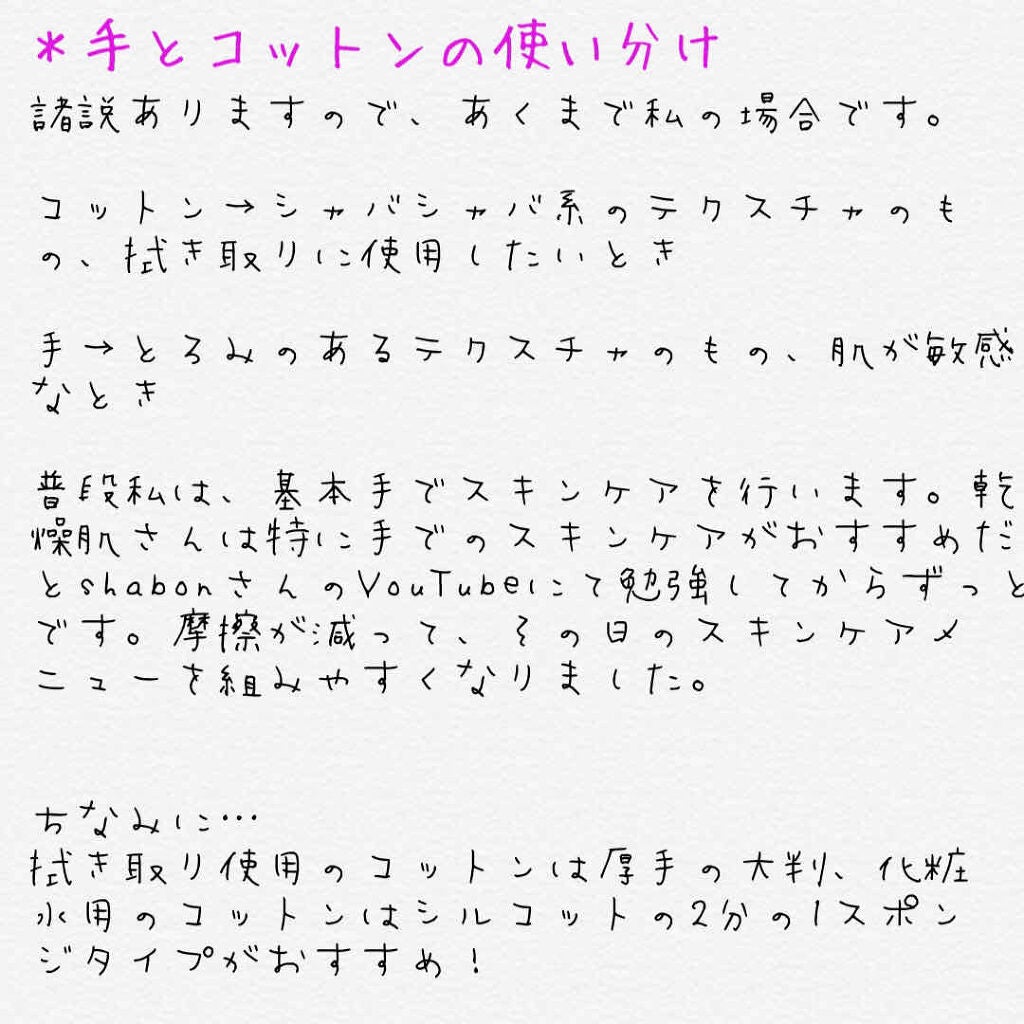 *手とコットンの使い分け
諸説ありますので、あくまで私の場合です。
コットン→シャバシャバ系のテクスチャのも
の、拭き取りに使用したいとき
手→とろみのあるテクスチャのもの、肌が敏感
なとき
普段私は、基本手でスキンケアを行います。乾
燥肌さんは特に手でのスキンケアがおすすめだ
とshabonさんのYouTubeにて勉強してからずっと
です。摩擦が減って、その日のスキンケアメ
ニューを組みやすくなりました。
ちなみに…
拭き取り使用のコットンは厚手の大判、化粧
水用のコットンはシルコットの2分の1スポン
ジタイプがおすすめ！